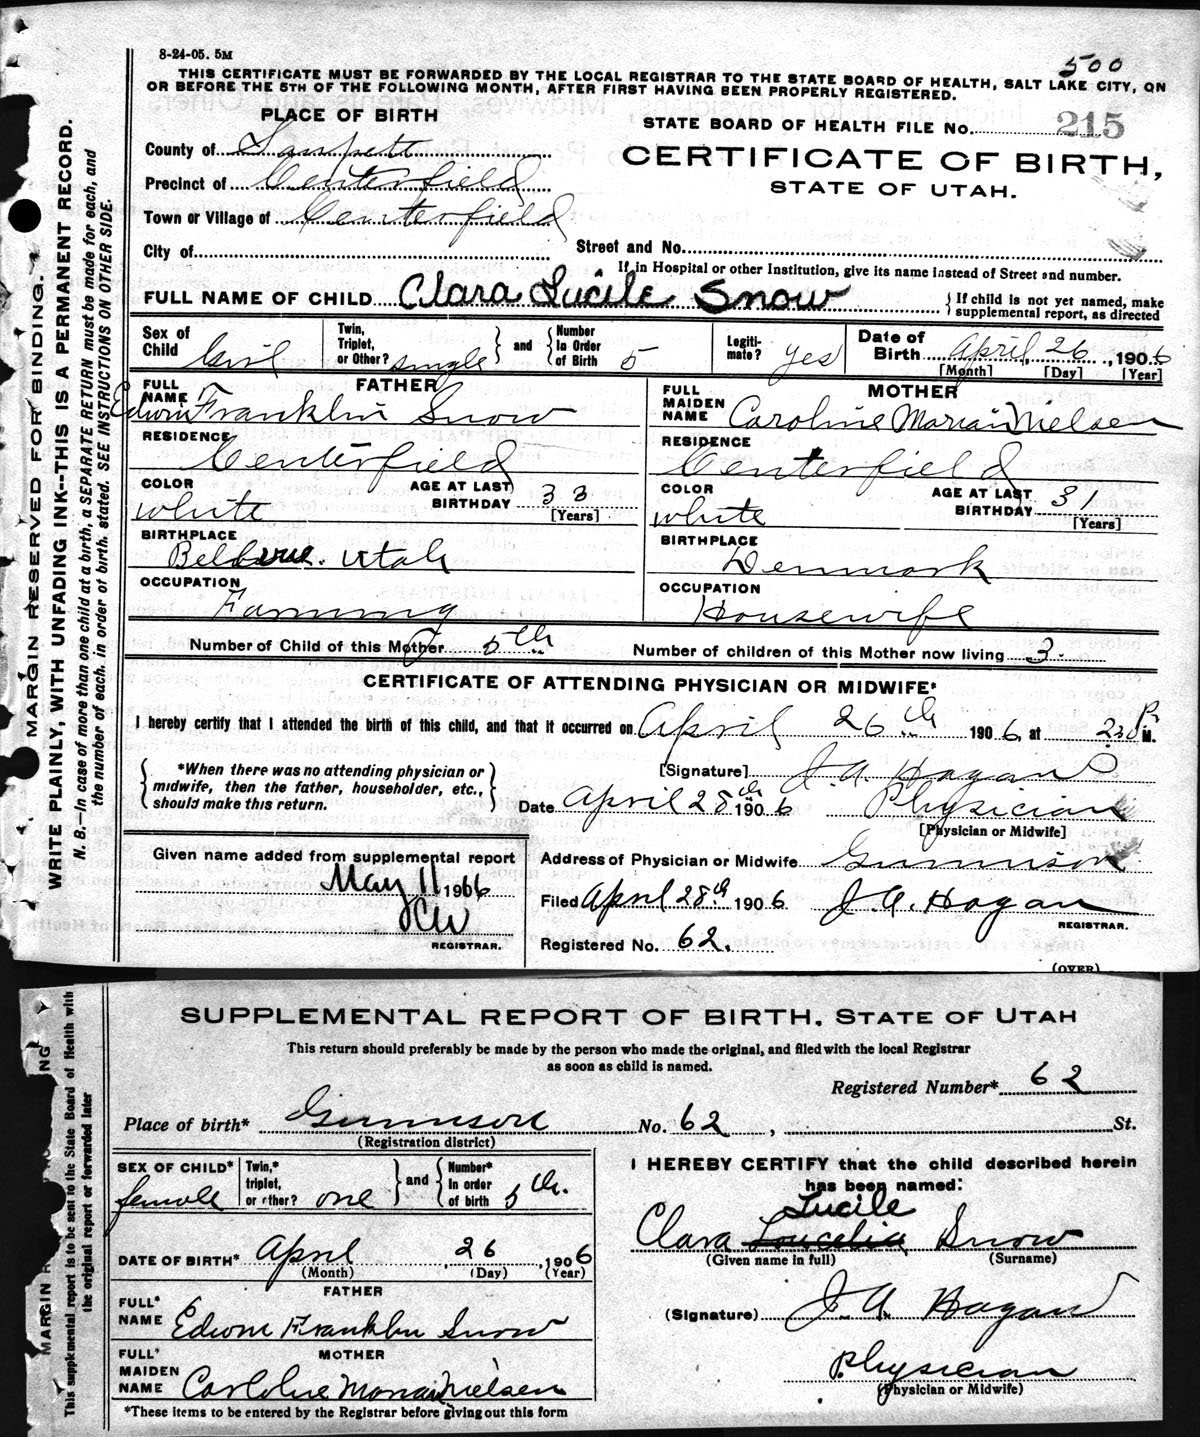 8-24-05. 5M
500
THIS CERTIFICATE MUST BE FORWARDED BY THE LOCAL REGISTRAR TO THE STATE BOARD OF HEALTH, SALT LAKE CITY, ON
OR BEFORE THE 5TH OF THE FOLLOWING MONTH, AFTER FIRST HAVING BEEN PROPERLY REGISTERED.
PLACE OF BIRTH
STATE BOARD OF HEALTH FILE No. 215
County of Sanpete
CERTIFICATE OF BIRTH,
Precinct of Centerfield
STATE OF UTAH.
Town or Village of Centerfield
City of
Street and No.
If in Hospital or other Institution, give its name instead of Street and number.
FULL NAME OF CHILD Clara Lucile Snow
{If child is not yet named, make
supplemental report, as directed
Sex of Child Girl
Twin, Triplet, or Other? single } and { Number In Order of Birth 5
Legiti-mate? yes
Date of Birth April 26, 1906
[Month] [Day] [Year]
FATHER
FULL NAME Edwin Franklin Snow
RESIDENCE Centerfield
COLOR white
AGE AT LAST BIRTHDAY 33 [Years]
BIRTHPLACE Utah
OCCUPATION Farming
MOTHER
FULL MAIDEN NAME Caroline Marian Nielsen
RESIDENCE Centerfield
COLOR white
AGE AT LAST BIRTHDAY 31 [Years]
BIRTHPLACE Denmark
OCCUPATION Housewife
Number of Child of this Mother 5th
Number of children of this Mother now living 3.
CERTIFICATE OF ATTENDING PHYSICIAN OR MIDWIFE*
I hereby certify that I attended the birth of this child, and that it occurred on April 26th 1906, at P. M.
{*When there was no attending physician or
midwife, then the father, householder, etc.,
should make this return.}
[Signature] J. A. Hagan
Date April 28th 1906 Physician
[Physician or Midwife]
Given name added from supplemental report
May 11 1906
REGISTRAR.
Address of Physician or Midwife Gunnison
Filed April 28th 1906 J. A. Hagan
REGISTRAR.
Registered No. 62.
(OVER)
MARGIN RESERVED FOR BINDING.
WRITE PLAINLY, WITH UNFADING INK--THIS IS A PERMANENT RECORD.
N. B.—In case of more than one child at a birth, a SEPARATE RETURN must be made for each, and
the number of each, in order of birth, stated. SEE INSTRUCTIONS ON OTHER SIDE.
SUPPLEMENTAL REPORT OF BIRTH, STATE OF UTAH
This return should preferably be made by the person who made the original, and filed with the local Registrar
as soon as child is named.
Registered Number* 62
Place of birth* Gunnison No. 62, St.
(Registration district)
SEX OF CHILD* female
Twin,* triplet, or other? one } and { Number* In order of birth 5th.
DATE OF BIRTH* April 26, 1906
(Month) (Day) (Year)
FATHER
FULL* NAME Edwin Franklin Snow
MOTHER
FULL* MAIDEN NAME Caroline Marian Nielsen
*These items to be entered by the Registrar before giving out this form
I HEREBY CERTIFY that the child described herein
has been named:
Lucile
Clara Loucelia Snow
(Given name in full) (Surname)
(Signature) J. A. Hagan
Physician
(Physician or Midwife)
This supplemental report is to be sent to the State Board of Health with
the original report or forwarded later